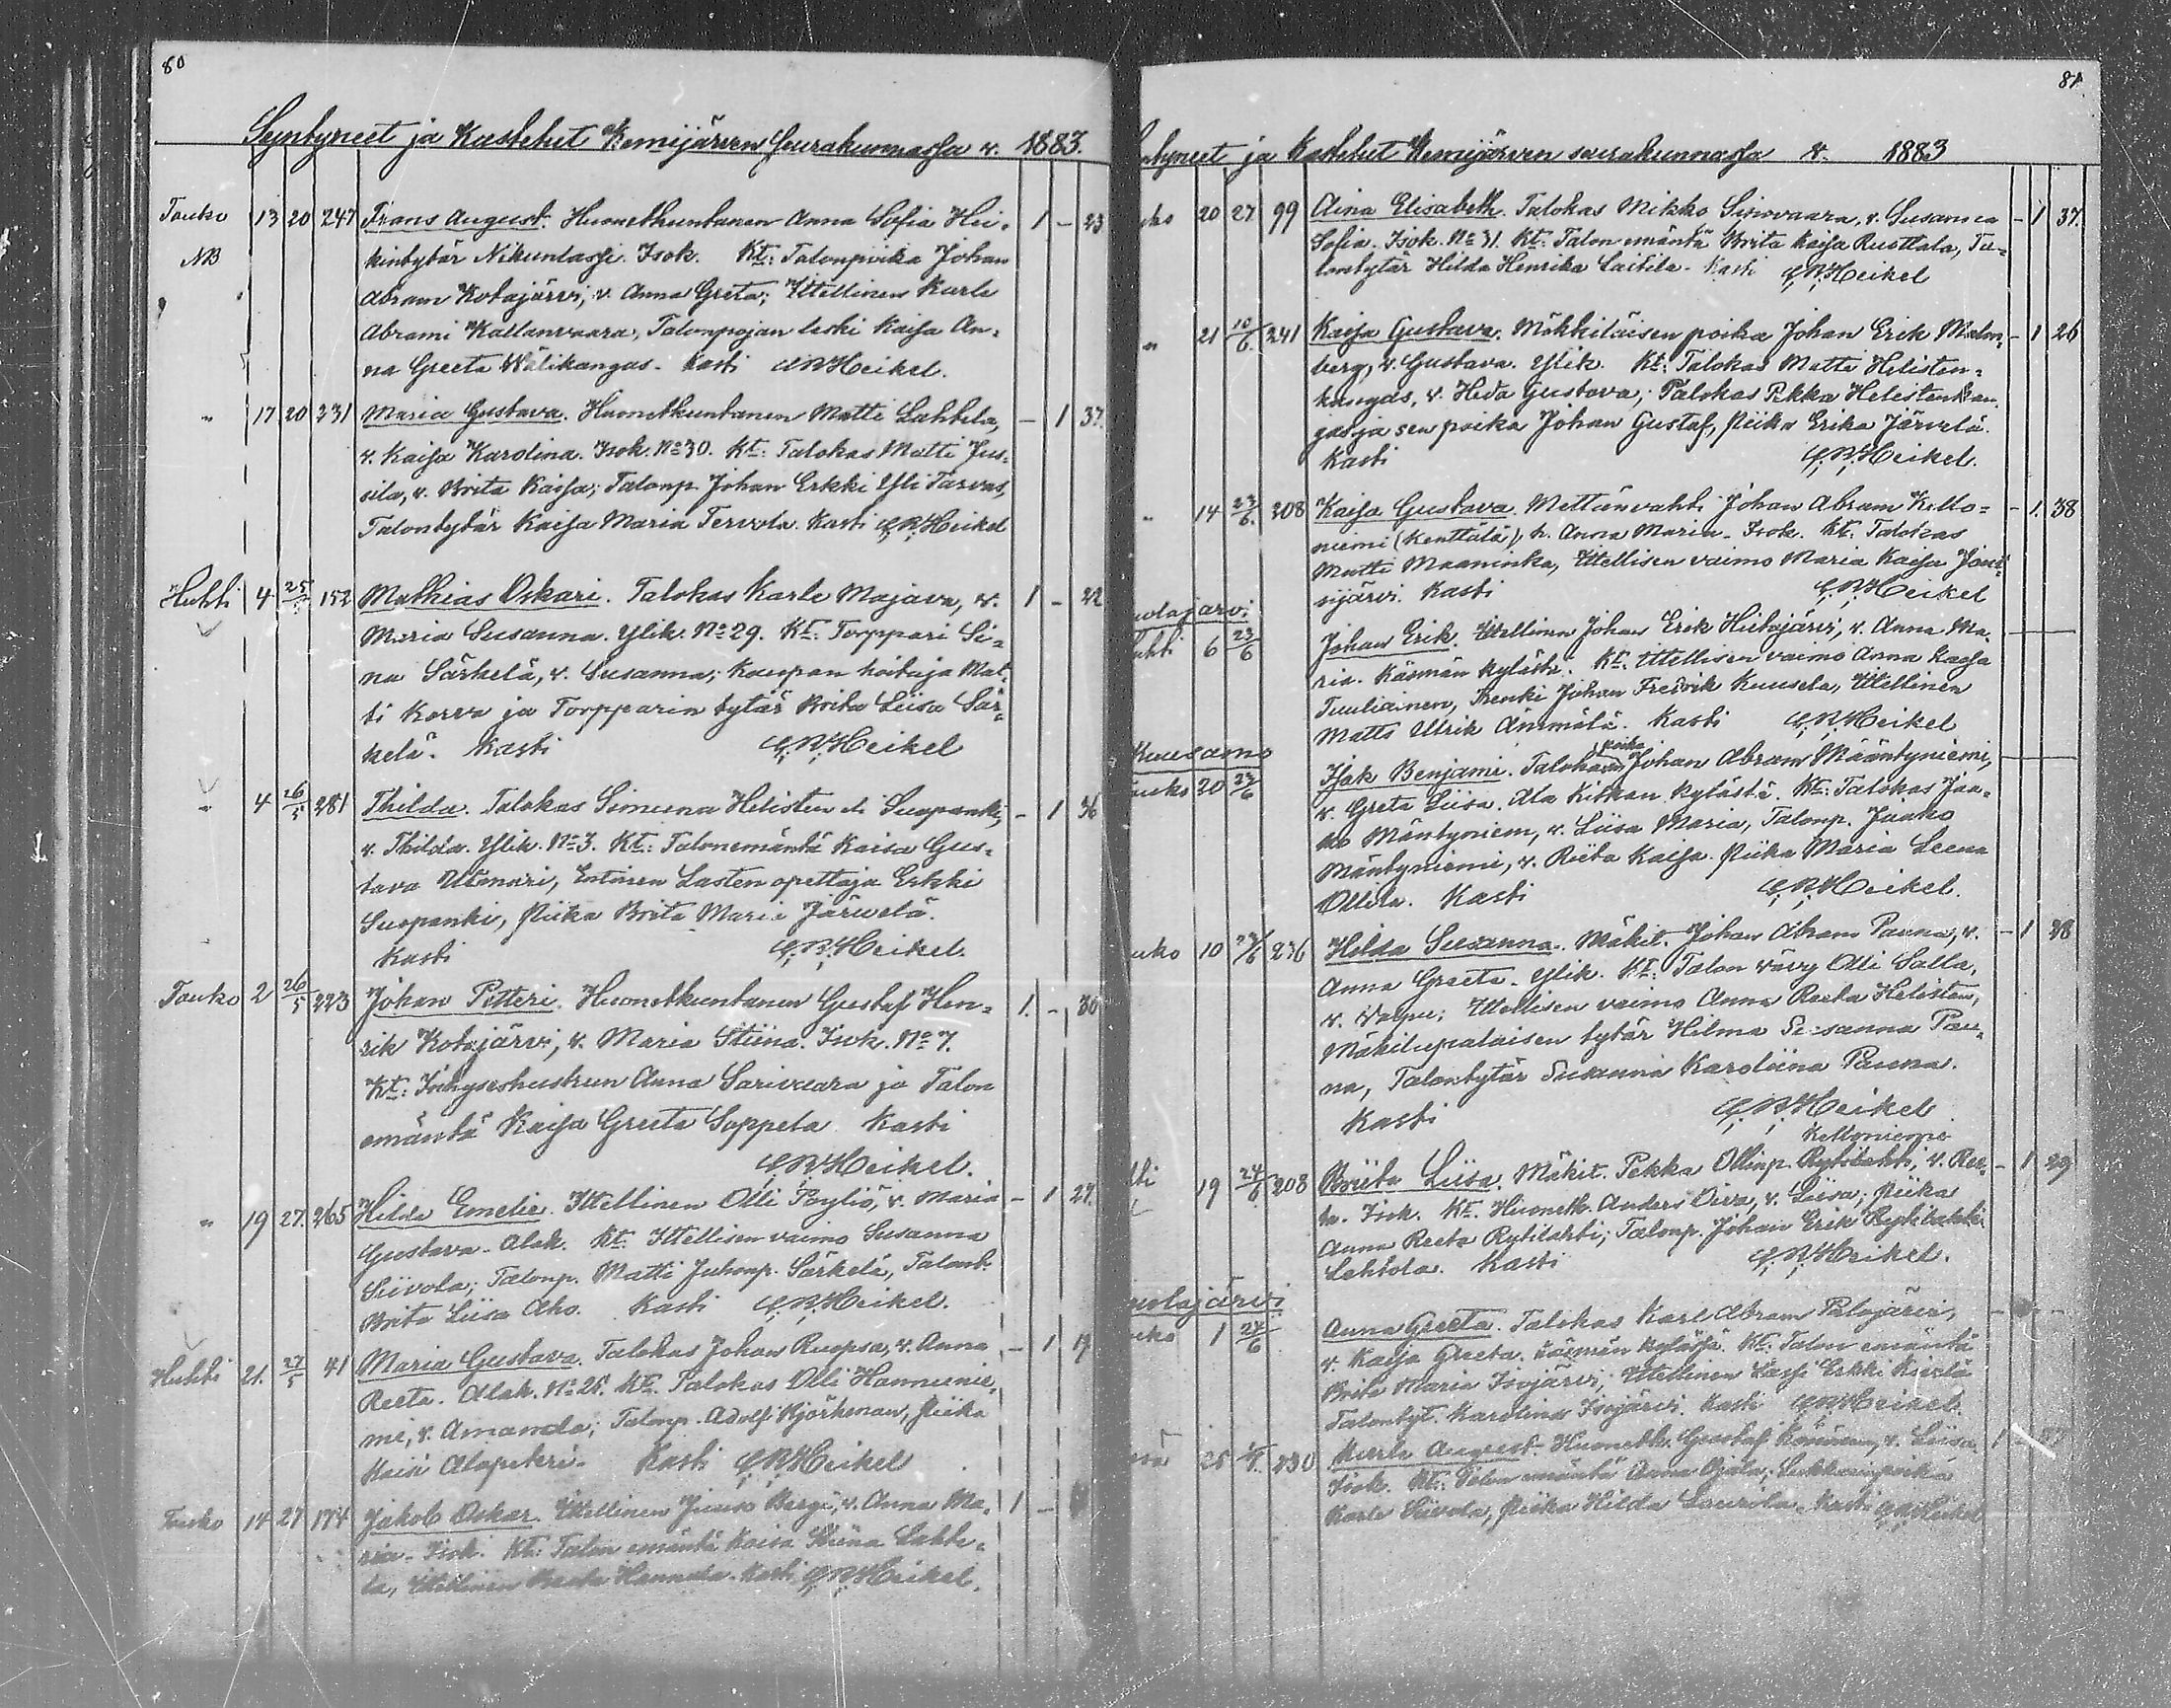 80
Syntyneet ja Kastetut Kemijärven Seurakunnassa v. 1883.
Touko 13 20 247 Frans August. Huonetkuntanen Anna Sofia Hei- 1 - 23
NB kintytär Nikunlassi. Isok. Kt: Talonpoika Johan
Abram Kotajärvi, v. Anna Greta; Ittellinen Karle
Abrami Kallanvaara, Talonpojan leski Kaisa An-
na Greeta Wälikangas. Kasti C.R.Heikel.
" 17 20 231 Maria Gustava. Huonetkuntanen Matti Lahtela, - 1 37.
v. Kaisa Karolina. Isok. No 30. Kt: Talokas Matti Jus-
sila, v. Brita Kaisa; Talonp. Johan Erkki Yli Tarvas,
Talontytär Kaisa Maria Tervola. Kasti C.R.Heikel
Huhti 4 25/5 152 Mathias Oskari. Talokas Karle Majava, v. 1 - 22
Maria Susanna. Ylik. No 29. Kt: Torppari Si-
na Särkelä, v. Susanna; Kaupan hoitaja Mat-
ti Korva ja Torpparin tytär Brita Liisa Sär-
kelä. Kasti C.R.Heikel
" 4 26/5 281 Thilda. Talokas Simuna Helisten eli Suopanki, - 1 36
v. Thilda. Ylik. No 3. Kt: Talonemäntä Kaisa Gus-
tava Utunari, Entinen Lasten opettaja Erkki
Suopanki, Piika Brita Maria Järvelä.
Kasti C.R.Heikel.
Touko 2 26/5 223 Johan Petteri. Huonetkuntanen Gustaf Hen- 1. - 30
rik Kotajärvi, v. Maria Stiina. Isok. No 7.
Kt: Itihyseshustrun Anna Sarivaara ja Talon
emäntä Kaisa Greeta Soppela. Kasti
C.R.Heikel.
" 19 27. 265 Hilda Emelie. Ittellinen Olli Pöyliö, v. Maria - 1 27.
Gustava. Alak. Kt: Ittellisen vaimo Susanna
Siivola; Talonp. Matti Juhonp. Särkelä, Talont.
Brita Liisa Aho. Kasti C.R.Heikel.
Huhti 21. 27/5 41 Maria Gustava. Talokas Johan Ruopsa, v. Anna - 1 19
Reeta. Alak. No 25. Kt: Talokas Olli Hannunie-
mi, v. Amanda; Talonp. Adolf Björkman, Piika
Kaisi Alaputeri. Kasti C.R.Heikel
Touko 14 27 174 Jakob Oskar. Ittellinen Juuso Berge, v. Anna Ma- 1 -
ria. Isok. Kt: Talon emäntä Kaisa Stiina Lahte-
la, Ittellinen Hannula. Kasti C.R.Heikel.
81.
ntyneet ja Kastetut Kemijärven seurakunnassa v. 1883
uko 20 27 99 Aina Elisabeth. Talokas Mikko Sirnvaara, v. Susanna - 1 37.
Sofia. Isok. No 31. Kt: Talon emäntä Brita Kaisa Rusttala, Ta-
lontytär Hilda Henrika Laitila. Kasti C.R.Heikel
" 21 10/6. 241 Kaisa Gustava. Mökkiläisen poika Johan Erik Malm- - 1 26
berg, v. Gustava. Ylik. Kt: Talokas Matti Helisten-
kangas, v. Heda Gustava; Talokas Pekka Helistenkan-
gas ja sen poika Johan Gustaf, Piika Erika Järvelä.
Kasti C.R.Heikel.
" 14 23/6. 208 Kaisa Gustava. Mettänvahti Johan Abram Kello- - 1. 38
niemi (Kenttälä), v. Anna Maria. Isok. Kt: Talokas
Matti Maaninka, Ittellisen vaimo Maria Kaisa Joui-
sijärvi. Kasti C.R.Heikel
uolajärvi
uhti 6 23/6 Johan Erik. Ittellinen Johan Erik Hietajärvi, v. Anna Ma-
ria. Käsmän kylästä. Kt: Ittellisen vaimo Anna Kaisa
Tuuliainen, Renki Johan Fredrik Kuusela, Ittellinen
Matts Ulrik Änsmälä. Kasti C.R.Heikel
Kuusamo
ouko 20 23/6 Isak Benjami. Talokaan poika Johan Abram Mäntyniemi,
v. Greta Liisa. Ala Kitkan kylästä. Kt: Talokas Jaa-
ko Mäntyniem, v. Liisa Maria, Talonp. Jaako
Mäntyniemi, v. Riita Kaisa. Piika Maria Leena
Ollila. Kasti C.R.Heikel.
uko 10 23/6 236 Hilda Susanna. Mäkit. Johan Abram Pauna, v. - 1 38
Anna Greeta. Ylik. Kt: Talon vävy Olli Salla,
v. Vappu; Ittellisen vaimo Anna Reeta Helisten,
Mäkitupalaisen tytär Hilma Susanna Pau-
na, Talontytär Susanna Karoliina Pauna.
Kasti C.R.Heikel
Kelloniemi
hti 19 24/6 208 Briita Liisa. Mäkit. Pekka Ollinp. Rytilahti, v. Ree- - 1 29
ta. Isok. Kt. Huonetk. Anders Oiva, v. Liisa; Piika
Anna Reeta Rytilahti; Talonp. Johan Erik Rytilahti
Lehtola. Kasti C.R.Heikel.
uolajärvi
ouko 1 24/6 Anna Greeta. Talokas Karl Abram Palojärvi, - - -
v. Kaisa Greeta. Käsmän kylässä. Kt: Talon emäntä
Brita Maria Isojärvi; Ittellinen Lassi Erkki Kierlä
Talontyt. Karolina Isojärvi. Kasti C.R.Heikel.
25 230 August. Huonetk. Gustaf v. Liisa. 1 -
Isok. Kt: Talon emäntä Anna Ojala; Lukkarinpoika
Karle Siivola, Piika Hilda Laurila. Kasti C.R.Heikel